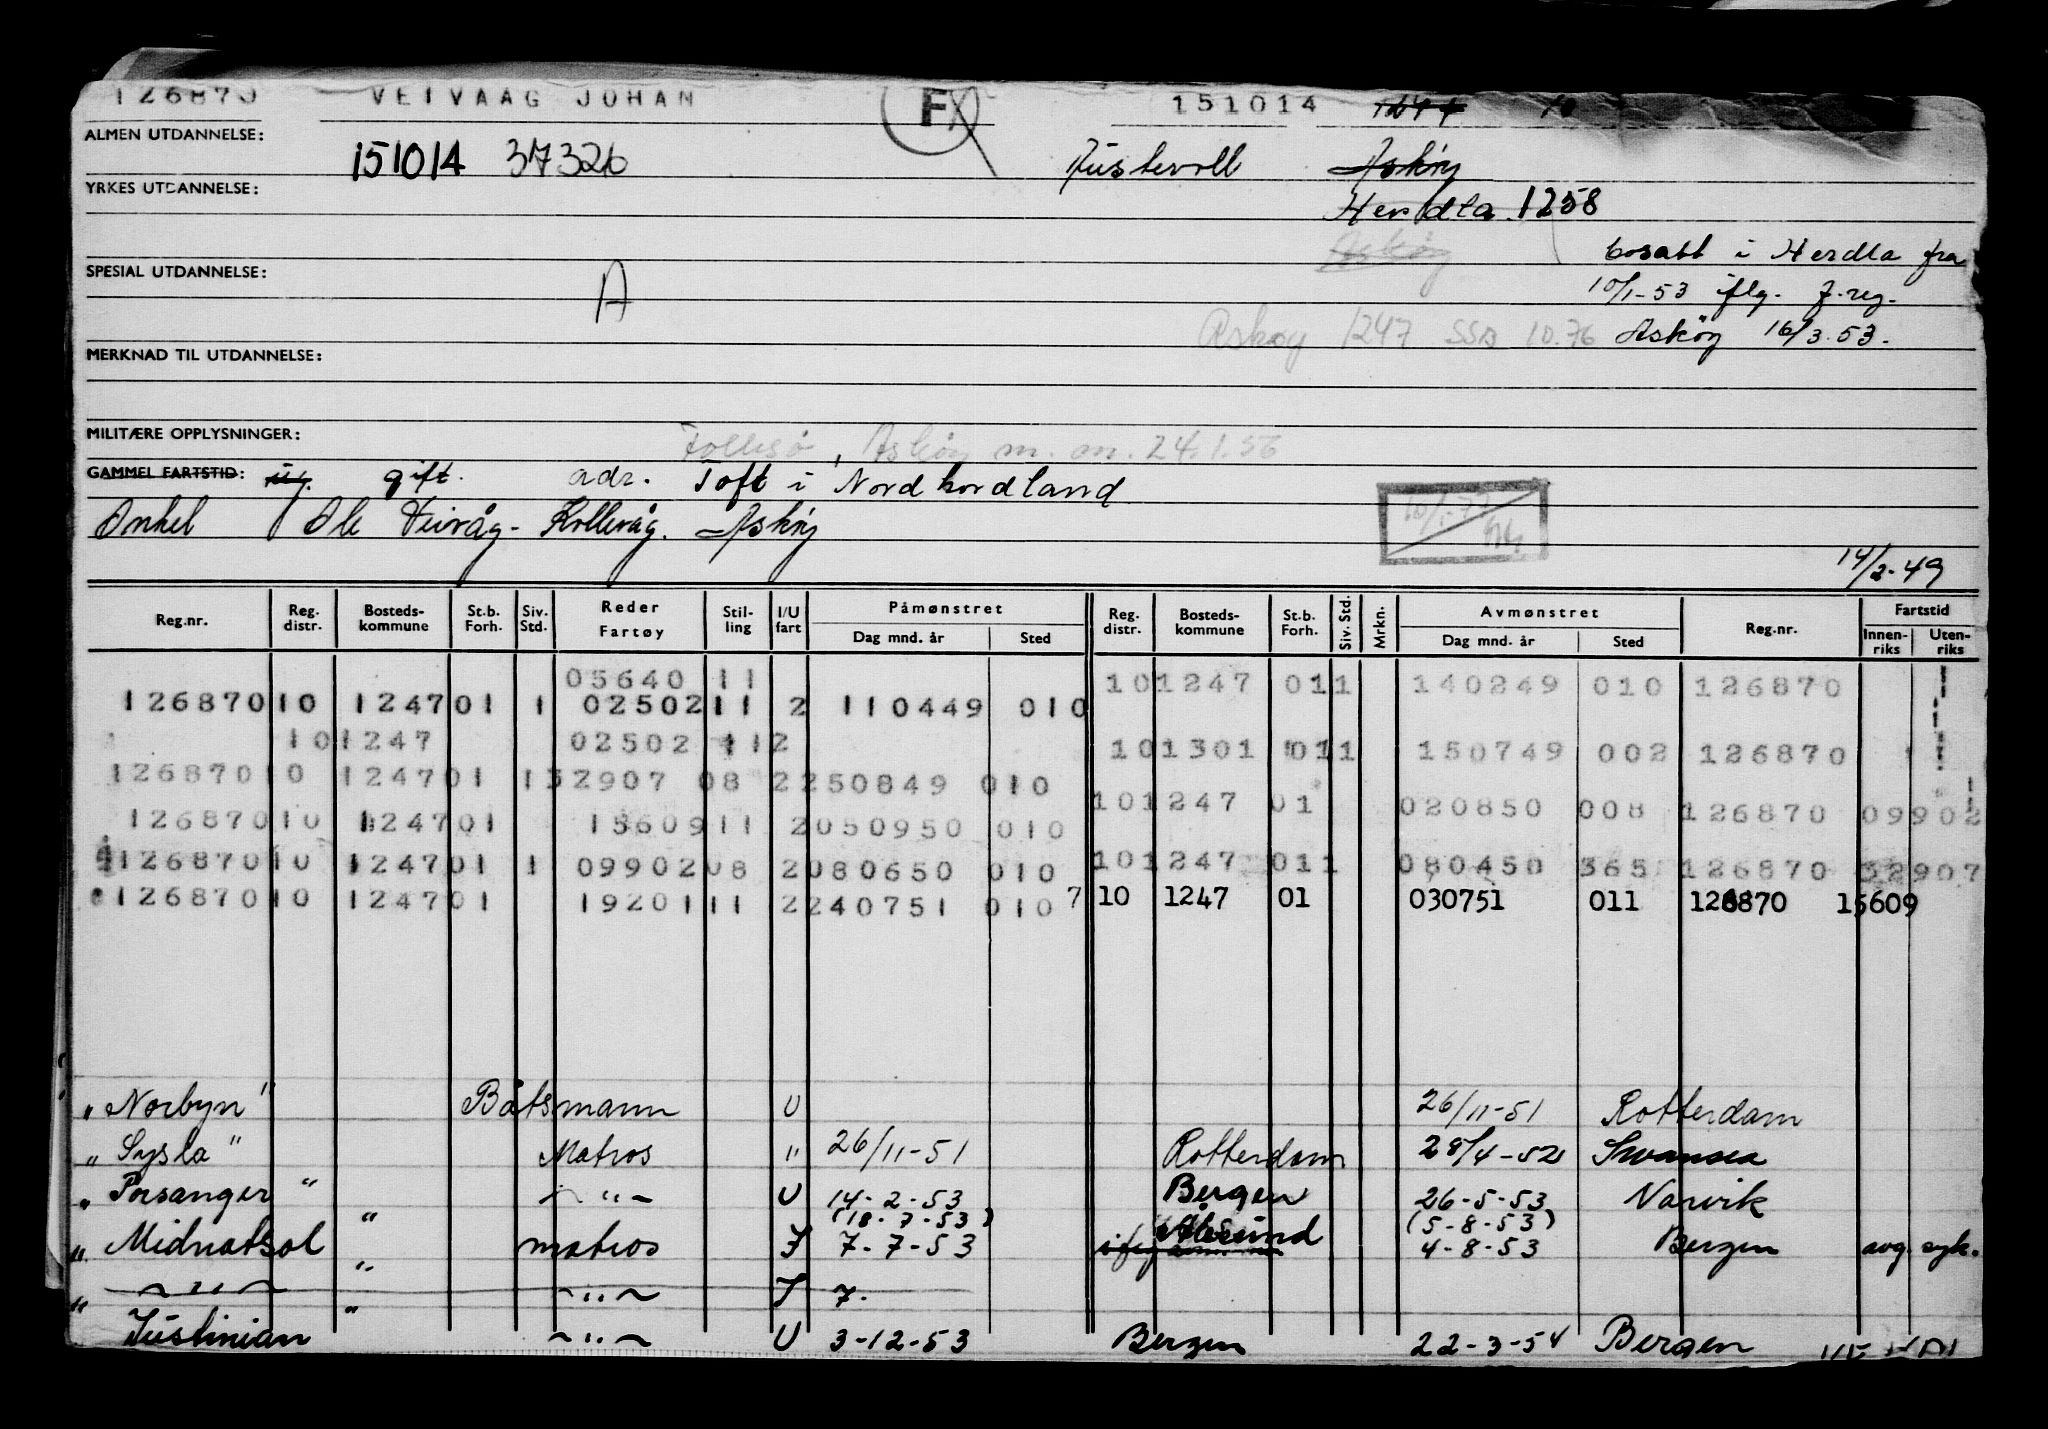 126870 VEIVAAG JOHAN F 151014
ALMEN UTDANNELSE:
151014 37326 Austevoll Askøy
YRKES UTDANNELSE:
Herdla 1258
Askøy bosatt i Herdla fra
SPESIAL UTDANNELSE: A
10/1-53 iflg. j.reg.
Askøy 1247 SSB 10.76 Askøy 16/3.53.
MERKNAD TIL UTDANNELSE:
MILITÆRE OPPLYSNINGER: Askøy m.m. 24.1.56
GAMMEL FARTSTID: ug. gift. adr. Toft i Nordhordland
Onkel Ole Veivåg - Kollevåg. Askøy
14/2-49
Reg.nr. Reg. distr. Bosteds- kommune St.b. Forh. Siv. Std. Reder Fartøy Stil- ling I/U fart Påmønstret Dag mnd. år Sted Reg. distr. Bosteds- kommune St.b. Forh. Siv. Std. Mrkn. Avmønstret Dag mnd. år Sted Reg.nr. Fartstid Innen- riks Uten- riks
05640 11 10 1247 01 1 140249 010 126870
126870 10 1247 01 1 02502 11 2 110449 010
10 1247 02502 11 2 10 1301 01 1 150749 002 126870
126870 10 1247 01 1 32907 08 2 250849 010
10 1247 01 020850 008 126870 09902
126870 10 1247 01 15609 11 2 050950 010
126870 10 1247 01 1 09902 08 2 080650 010 10 1247 01 1 080450 365 126870 32907
126870 10 1247 01 19201 11 2 240751 010 7 10 1247 01 030751 011 126870 15609
"Norbyn" Båtsmann U 26/11-51 Rotterdam
"Sysla" Matros " 26/11-51 Rotterdam 28/4-52 Swansea
"Porsanger" " U 14-2-53 Bergen 26-5-53 Narvik
(18-7-53) (5-8-53)
"Midnatsol" matros I 7-7-53 Ålesund 4-8-53 Bergen avg. syk.
" " I 7.
"Justinian" " U 3-12-53 Bergen 22-3-54 Bergen